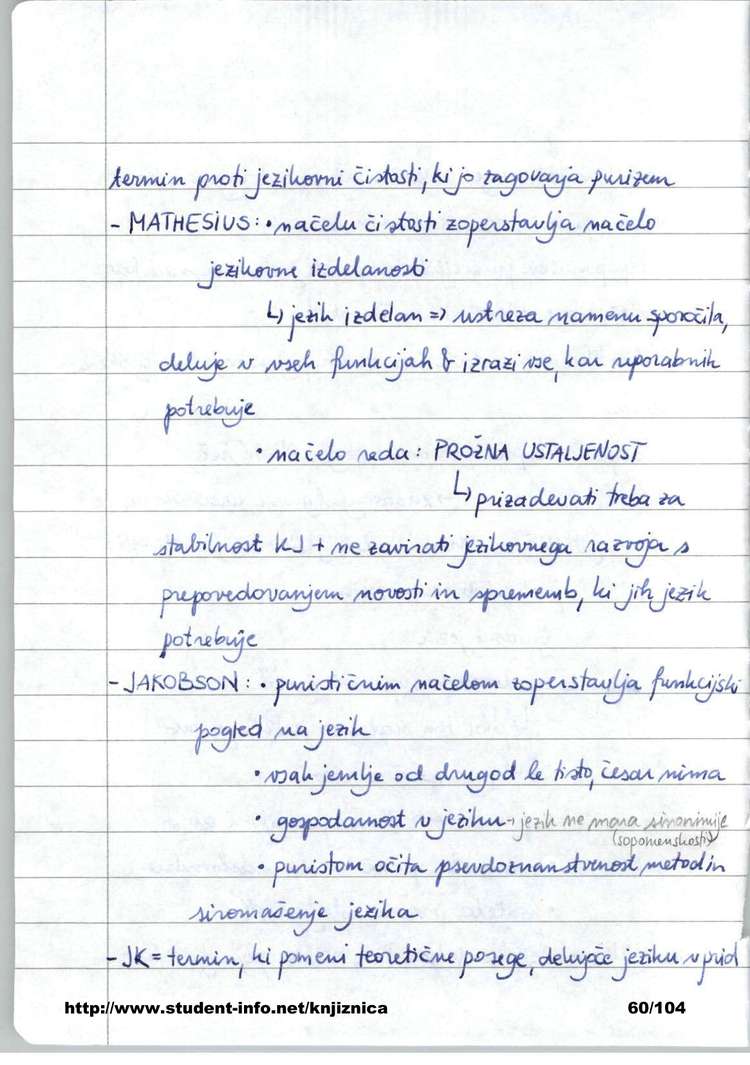 termin proti jezikovni čistosti, ki jo zagovarja purizem
- MATHESIUS: • načelu čistosti zoperstavlja načelo
jezikovne izdelanosti
↳ jezik izdelan => ustreza namenu sporočila,
deluje v vseh funkcijah & izrazi vse, kar uporabnik
potrebuje
• načelo reda: PROŽNA USTALJENOST
↳ prizadevati treba za
stabilnost KJ + ne zavirati jezikovnega razvoja s
prepovedovanjem novosti in sprememb, ki jih jezik
potrebuje
- JAKOBSON: • purističnim načelom zoperstavlja funkcijski
pogled na jezik
• vsak jemlje od drugod le tisto, česar nima
• gospodarnost v jeziku → jezik ne mara sinonimije
(sopomenskosti)
• puristom očita psevdoznanstvenost metod in
siromašenje jezika
- JK = termin, ki pomeni teoretične posege, delujoče jeziku v prid
http://www.student-info.net/knjiznica 60/104